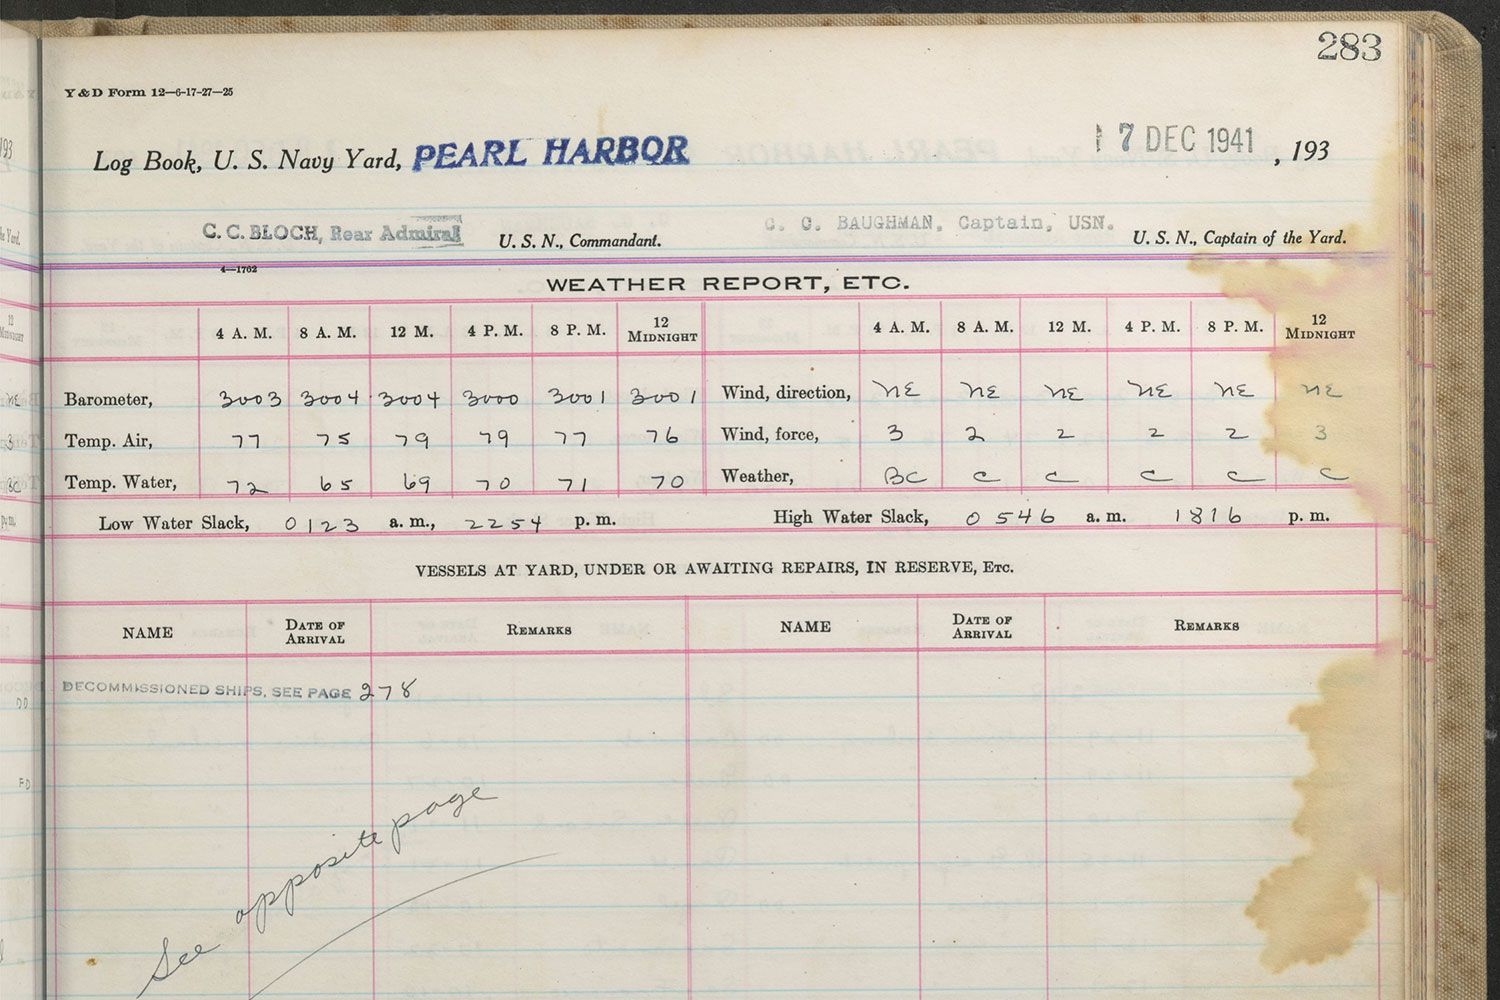 283
Y & D Form 12—6-17-27—25
Log Book, U. S. Navy Yard, PEARL HARBOR 17 DEC 1941, 193
C. C. BLOCH, Rear Admiral U. S. N., Commandant. C. C. BAUGHMAN, Captain, USN. U. S. N., Captain of the Yard.
4—1762
WEATHER REPORT, ETC.
4 A. M. 8 A. M. 12 M. 4 P. M. 8 P. M. 12 MIDNIGHT 4 A. M. 8 A. M. 12 M. 4 P. M. 8 P. M. 12 MIDNIGHT
Barometer, 3003 3004 3004 3000 3001 3001 Wind, direction, NE NE NE NE NE NE
Temp. Air, 77 75 79 79 77 76 Wind, force, 3 2 2 2 2 3
Temp. Water, 72 65 69 70 71 70 Weather, BC C C C C C
Low Water Slack, 0123 a. m., 2254 p. m. High Water Slack, 0546 a. m. 1816 p. m.
VESSELS AT YARD, UNDER OR AWAITING REPAIRS, IN RESERVE, ETC.
NAME DATE OF ARRIVAL REMARKS NAME DATE OF ARRIVAL REMARKS
DECOMMISSIONED SHIPS, SEE PAGE 278
See opposite page